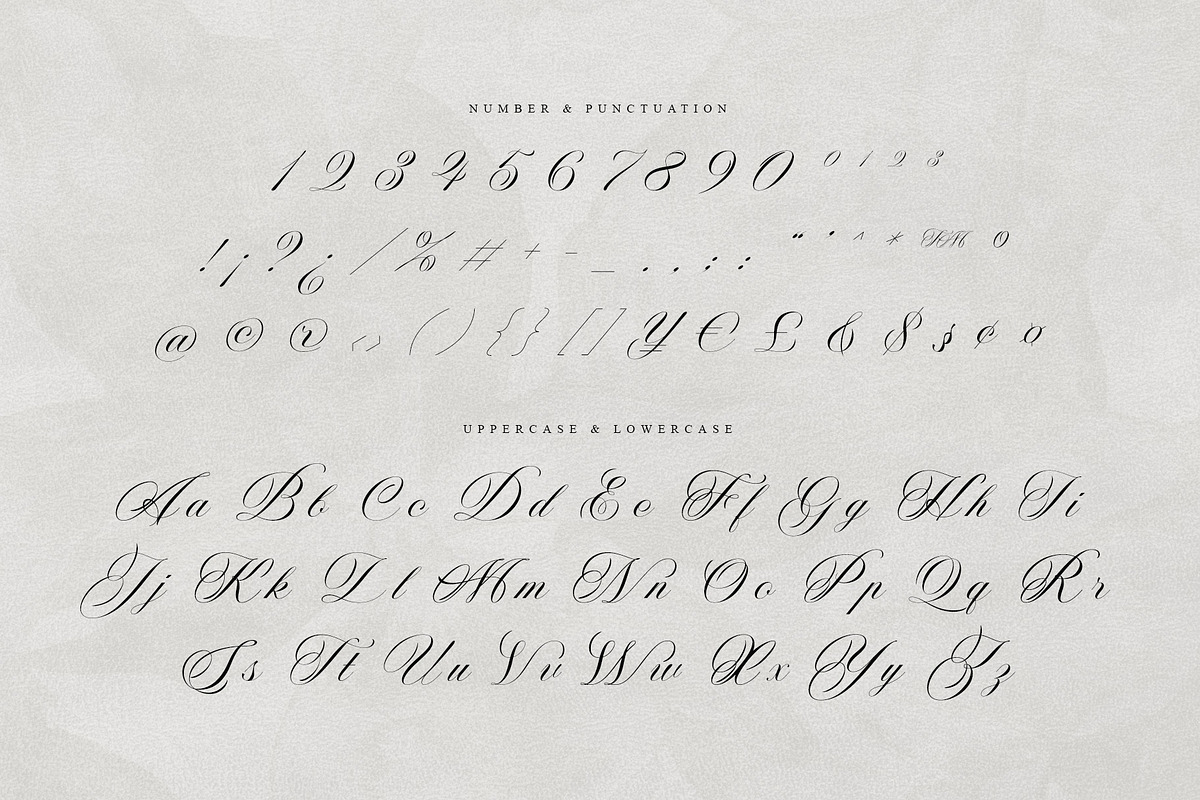 NUMBER & PUNCTUATION
1 2 3 4 5 6 7 8 9 0 ⁰ ¹ ² ³
! ¡ ? ¿ / % # + - _ . , ; : “ ’ ^ * ™ º
@ © ® ‹ › ( ) { } [ ] ¥ € £ & $ s ¢ o
UPPERCASE & LOWERCASE
Aa Bb Cc Dd Ee Ff Gg Hh Ii
Jj Kk Ll Mm Nn Oo Pp Qq Rr
Ss Tt Uu Vv Ww Xx Yy Zz